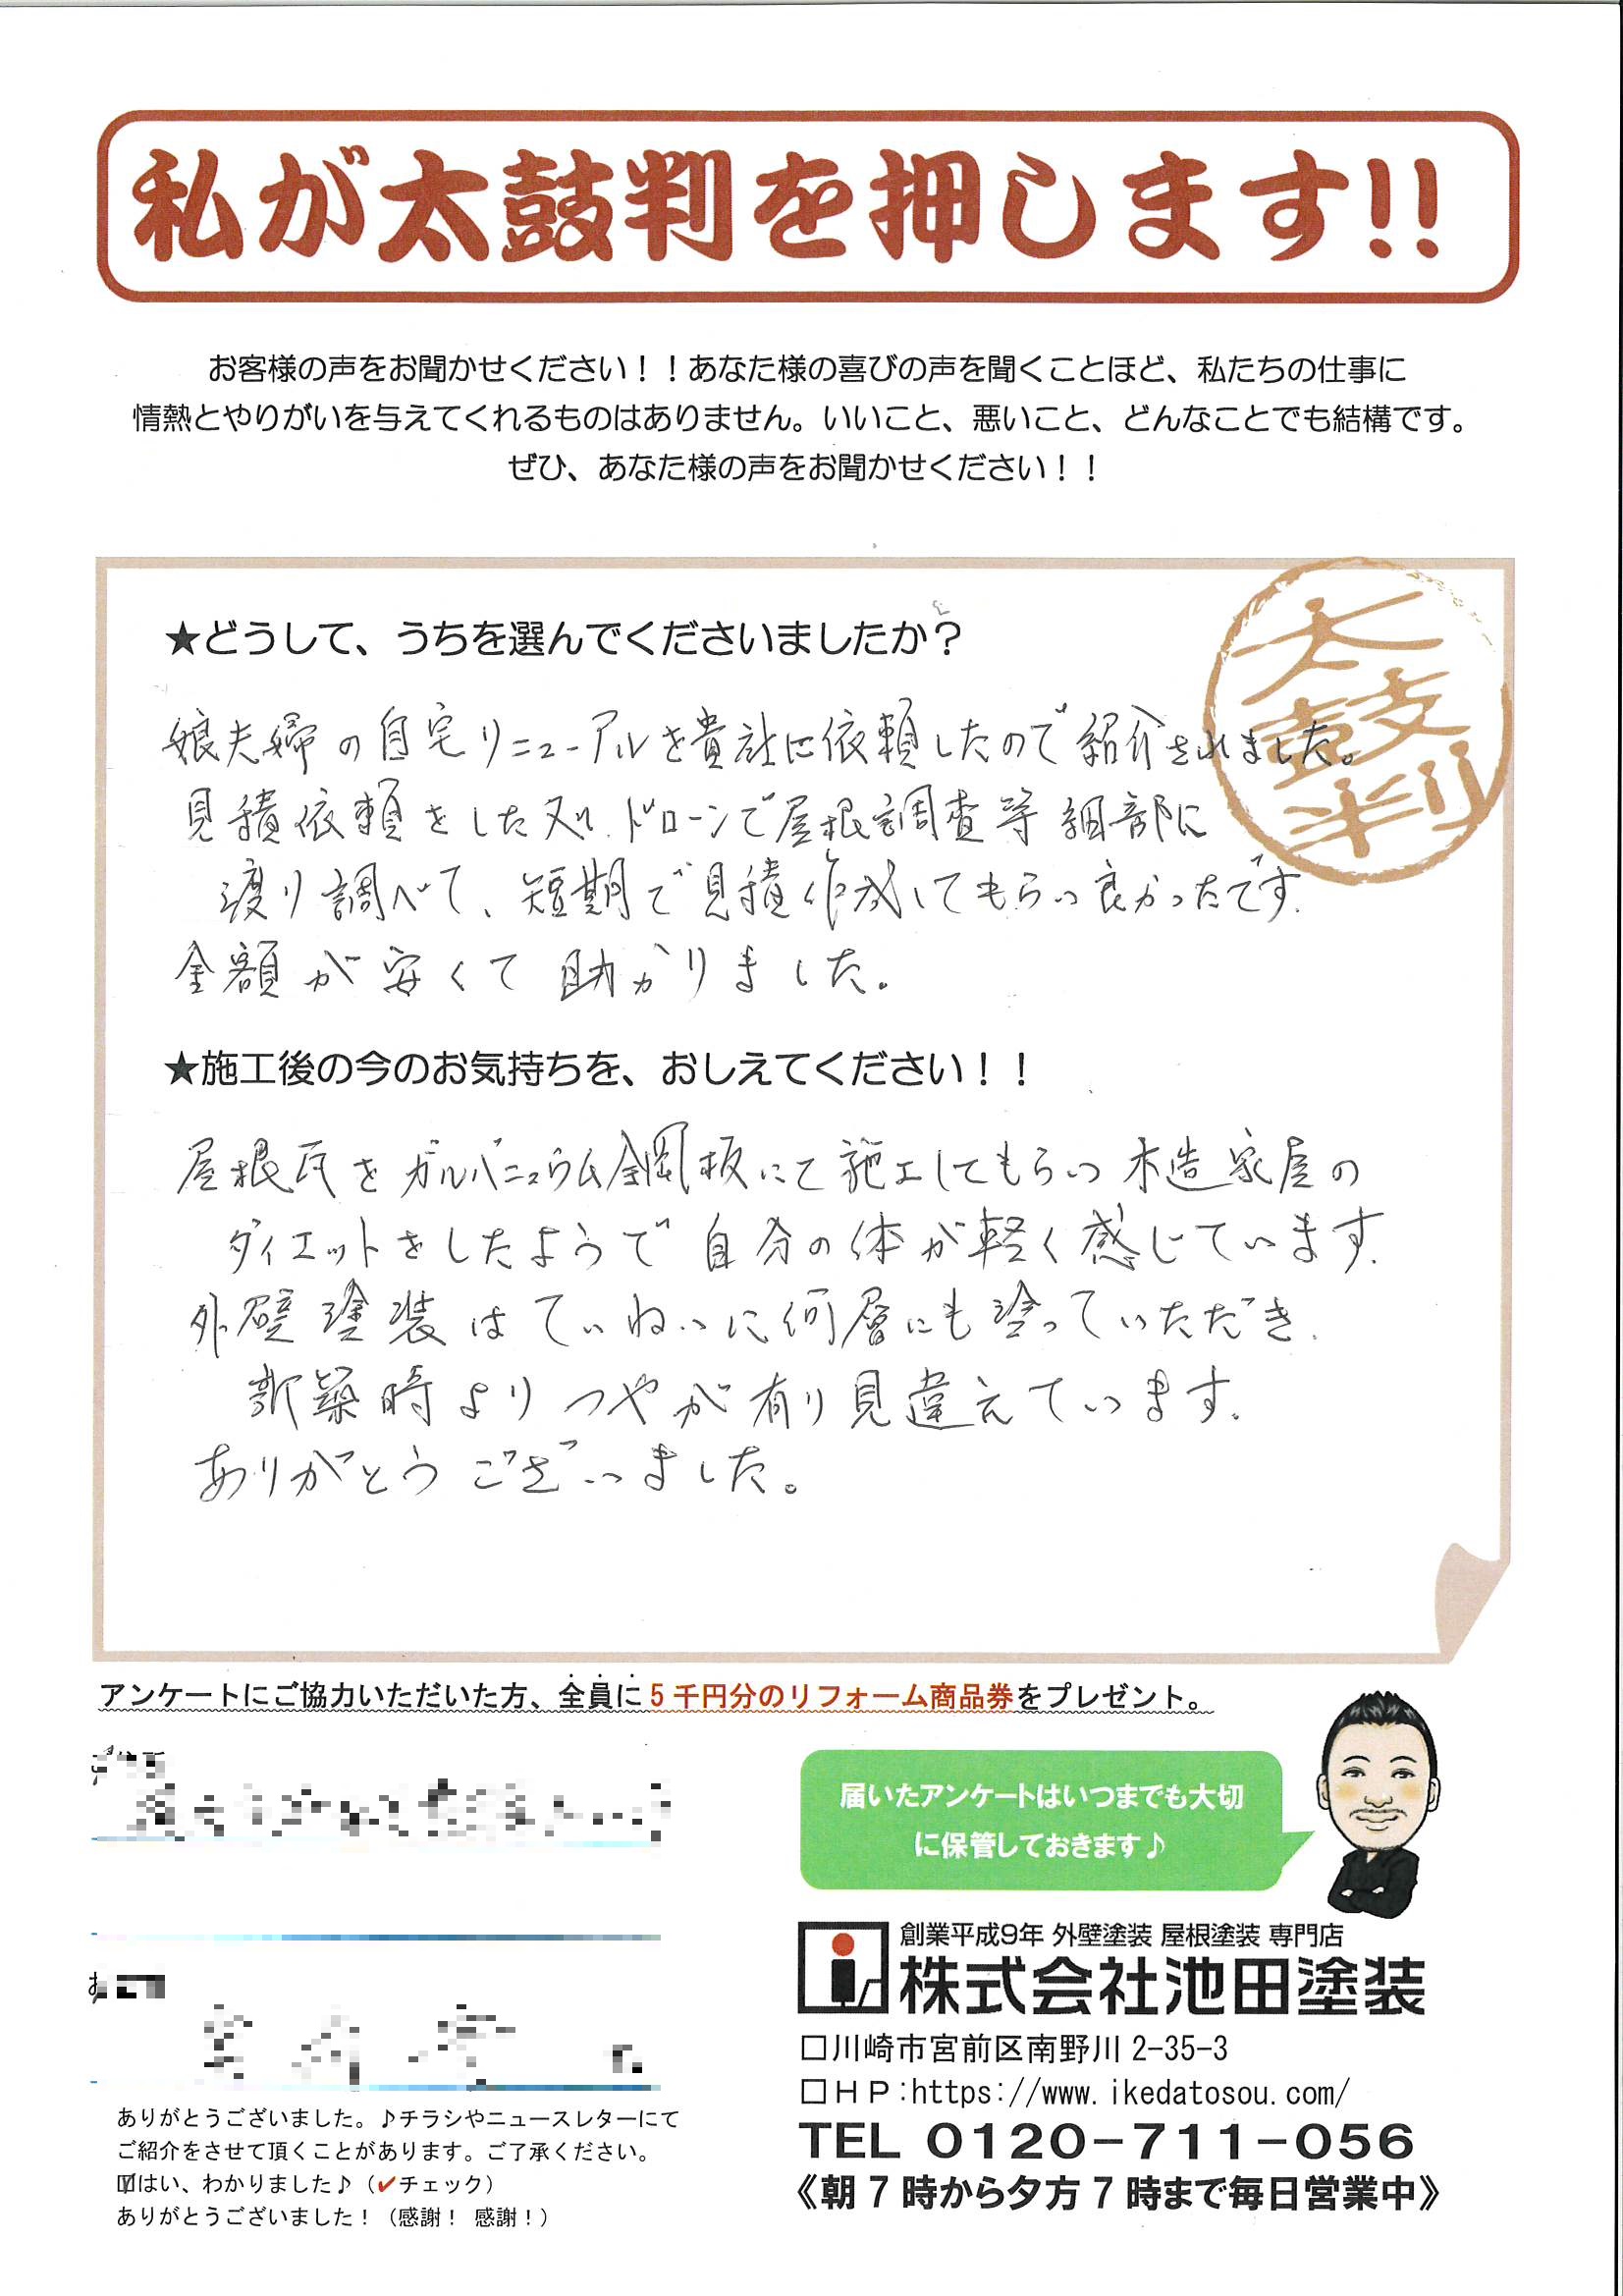 私が太鼓判を押します!!
お客様の声をお聞かせください！！あなた様の喜びの声を聞くことほど、私たちの仕事に
情熱とやりがいを与えてくれるものはありません。いいこと、悪いこと、どんなことでも結構です。
ぜひ、あなた様の声をお聞かせください！！
太鼓判
★どうして、うちを選んでくださいましたか？
娘夫婦の自宅リニューアルを貴社に依頼したので紹介されました。
見積依頼をした処、ドローンで屋根調査等細部に
渡り調べて、短期で見積作成してもらい良かったです。
金額が安くて助かりました。
★施工後の今のお気持ちを、おしえてください！！
屋根瓦をガルバニュウム鋼板にて施工してもらい木造家屋の
ダイエットをしたようで自分の体が軽く感じています。
外壁塗装はていねいに何層にも塗っていただき、
新築時よりつやが有り見違えています。
ありがとうございました。
アンケートにご協力いただいた方、全員に５千円分のリフォーム商品券をプレゼント。
届いたアンケートはいつまでも大切
に保管しておきます♪
創業平成9年 外壁塗装 屋根塗装 専門店
株式会社池田塗装
□川崎市宮前区南野川 2-35-3
□ＨＰ:https://www.ikedatosou.com/
TEL 0120-711-056
《朝７時から夕方７時まで毎日営業中》
ありがとうございました。♪チラシやニュースレターにて
ご紹介をさせて頂くことがあります。ご了承ください。
☑はい、わかりました♪（✓チェック）
ありがとうございました！（感謝！ 感謝！）